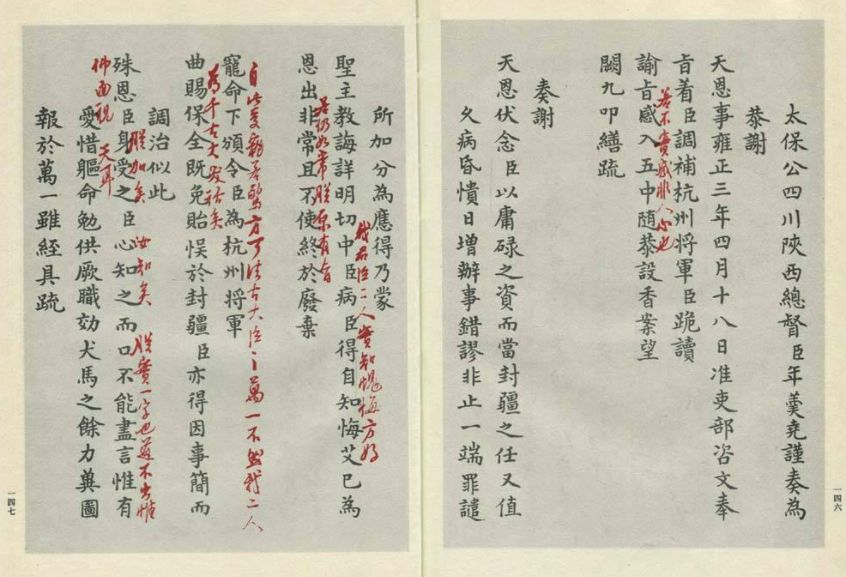 太保公四川陝西總督臣年羹堯謹奏為
恭謝
天恩事雍正三年四月十八日准吏部咨文奉
旨着臣調補杭州將軍臣跪讀
若不實感非人心也
諭旨感入五中隨恭設香案望
闕九叩繕疏
奏謝
天恩伏念臣以庸碌之資而當封疆之任又值
久病昏憒日增辦事錯謬非止一端罪譴
一四六
所加分為應得乃蒙
我君臣二人實知愧悔方好
聖主教誨詳明切中臣病臣得自知悔艾已為
若仍如常朕原有旨
恩出非常且不使終於廢棄
自此方可法古大臣之萬一不然我二人
寵命下頒令臣為杭州將軍
為千古大笑話矣
曲賜保全既免貽悞於封疆臣亦得因事簡而
調治似此
朕加矣 汝知矣 朕實一字也道不出惟
殊恩臣身受之臣心知之而口不能盡言惟有
佛面視天耳
愛惜軀命勉供厥職効犬馬之餘力兾圖
報於萬一雖經具疏
一四七